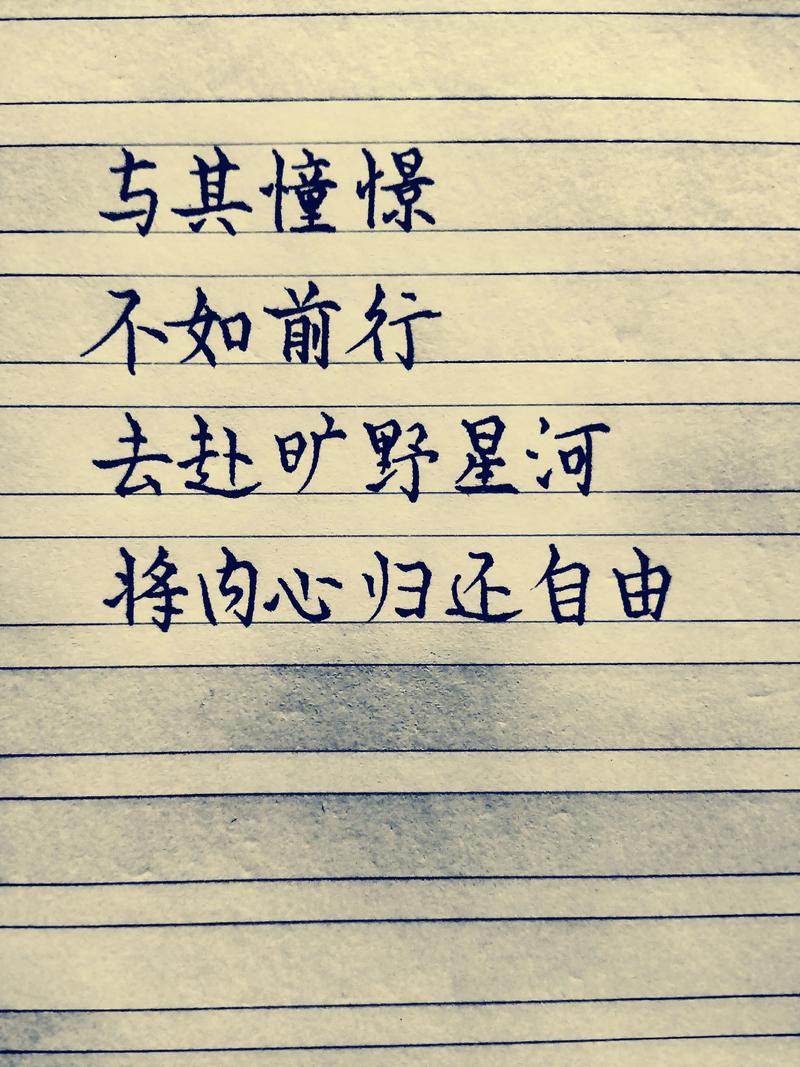 与其憧憬
不如前行
去赴旷野星河
将内心归还自由